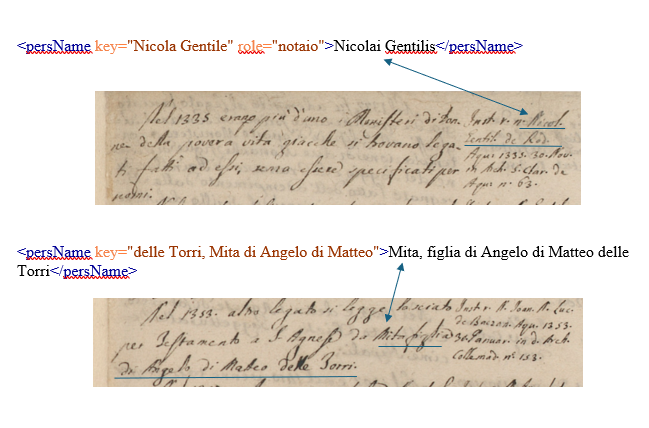 <persName key="Nicola Gentile" role="notaio">Nicolai Gentilis</persName>
Nel 1335 erano più d'uno i Monisteri di don-
ne della povera vita giacche si trovano lega-
ti fatti ad essi, senza essere specificati per
nomi.
Instr. r. n. Nicol.
Gentil. de Rod.
Aqu. 1335. 30. Nov.
in Arch. S. Clar. de
Aqu. n. 63.
<persName key="delle Torri, Mita di Angelo di Matteo">Mita, figlia di Angelo di Matteo delle
Torri</persName>
Nel 1353. altro legato si legge lasciato
per Testamento a S. Agnese da Mita figlia
di Angelo di Matteo delle Torri.
Instr. R. Joan. N. Luc.
de Baczan. Aqu. 1353.
Januar. in d. Arch.
Collemad. n. 153.